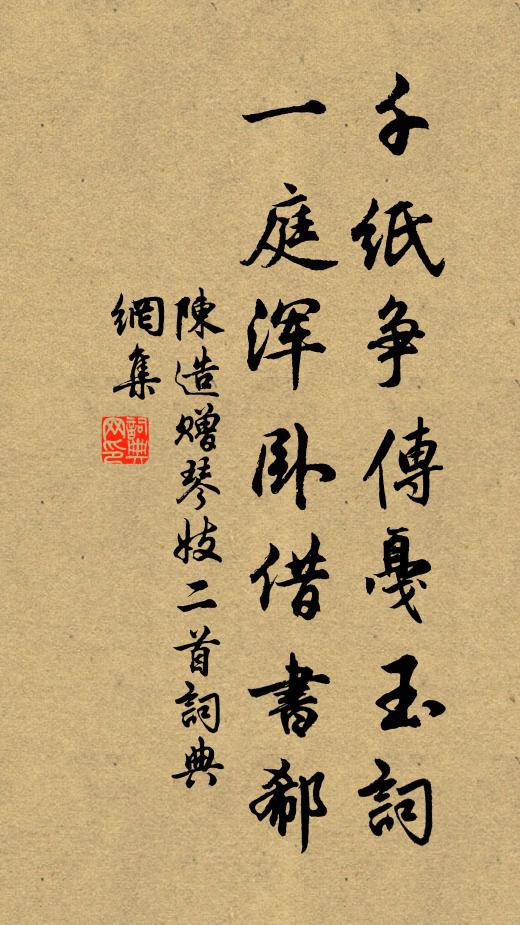 千紙争傳戛玉詞
一庭渾卧借書郗
陳造贈琴妓二首詞典
網集
詞典
网印